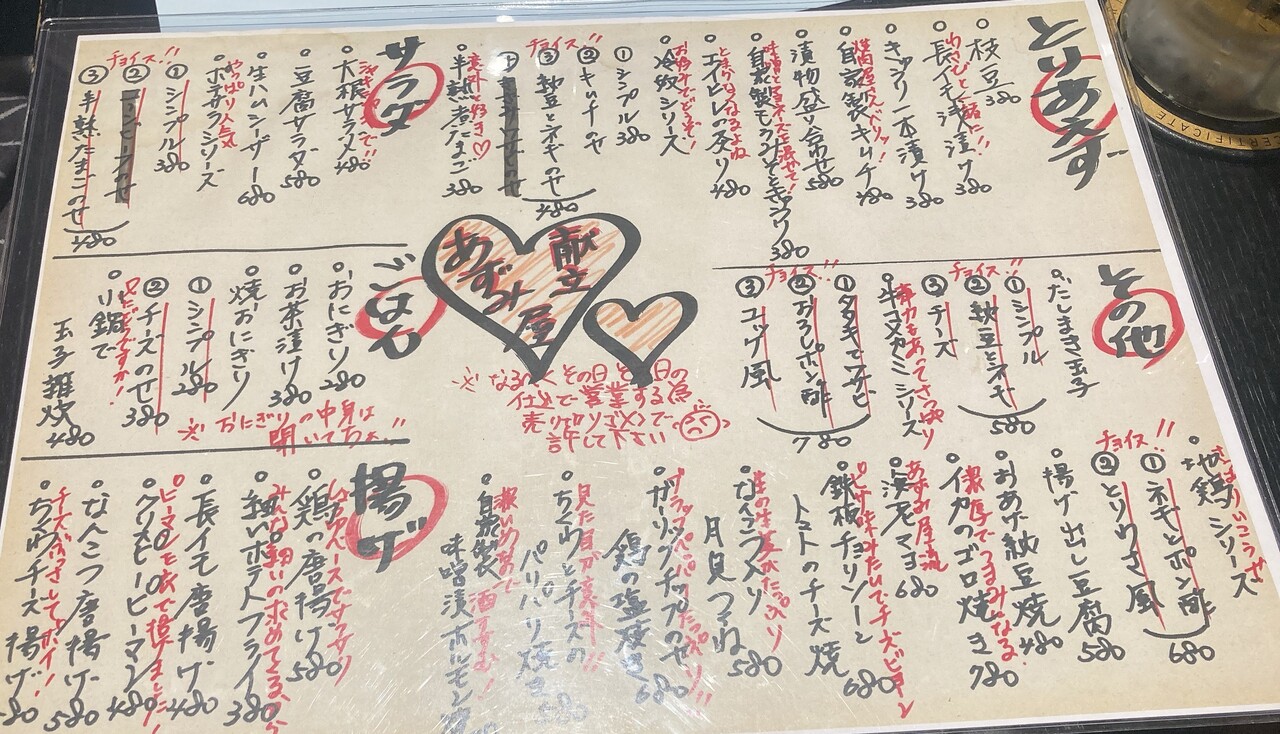 とりあえず
枝豆
380
わさびと一緒に!!
長イモ浅漬け
380
きゅうり一本漬け
380
焼肉屋さんパリッ!
自家製キムチ
480
漬物盛り合わせ
580
味噌とマヨネーズを混ぜて!
自家製もろみそときゅうり
380
とまらなくなるよね
エイヒレの炙り
480
お好みでどうぞ!
冷奴シリーズ
①シンプル
380
チョイス!!
②キムチのせ
③納豆とネギのせ
480
意外と好き♡
半熟煮たまご
380
サラダ
シャキシャキで!!
大根サラダ
480
豆腐サラダ
580
生ハムシーザー
680
やっぱり人気
ポテサラシリーズ
①シンプル
380
チョイス!!
③半熟たまごのせ
480
献立
あずみ屋
※なるべくその日その日の
仕込で営業する為
売り切りゴメンで
許して下さい
その他
だしまき玉子
チョイス!!
①シンプル
②納豆とネギ
③チーズ
580
串カもあってさっぱり
牛コメカミシリーズ
チョイス!!
①タタキでワサビ
②おろしポン酢
③ユッケ風
780
ごはん
おにぎり
280
お茶漬け
380
焼おにぎり
①シンプル
280
②チーズのせ
380
※おにぎりの中身は
聞いてちょ!!
小鍋で
玉子雑炊
480
地鶏シリーズ
チョイス!!
①ネギとポン酢
②とりわさ風
680
揚げ出し豆腐
580
おあげ納豆焼
480
濃厚でつまみになる
イカのゴロ焼き
780
あずみ屋流
浜老マヨ
680
ピザ味みたいでチーズビヨーン
鉄板チョリソーン
トマトのチーズ焼
680
生の生姜がたっぷり
なんこつ入り
月見つくね
580
ブラックペパーがたっぷり!!
ガーリックチップのせ
鶏の塩焼き
680
見た目が意外!!
ちくわとチーズの
パリパリ焼き
580
濃いめので
酒すすむ!
自家製
味噌漬ホルモン焼
揚げ
鶏の唐揚げ
580
みんな細いの求めてるから
細いポテトフライ
380
長イモ唐揚げ
480
ピーマンを衣で揚ました!
クリスピーピーマン
480
なんこつ唐揚げ
580
ちくわチーズ揚げ